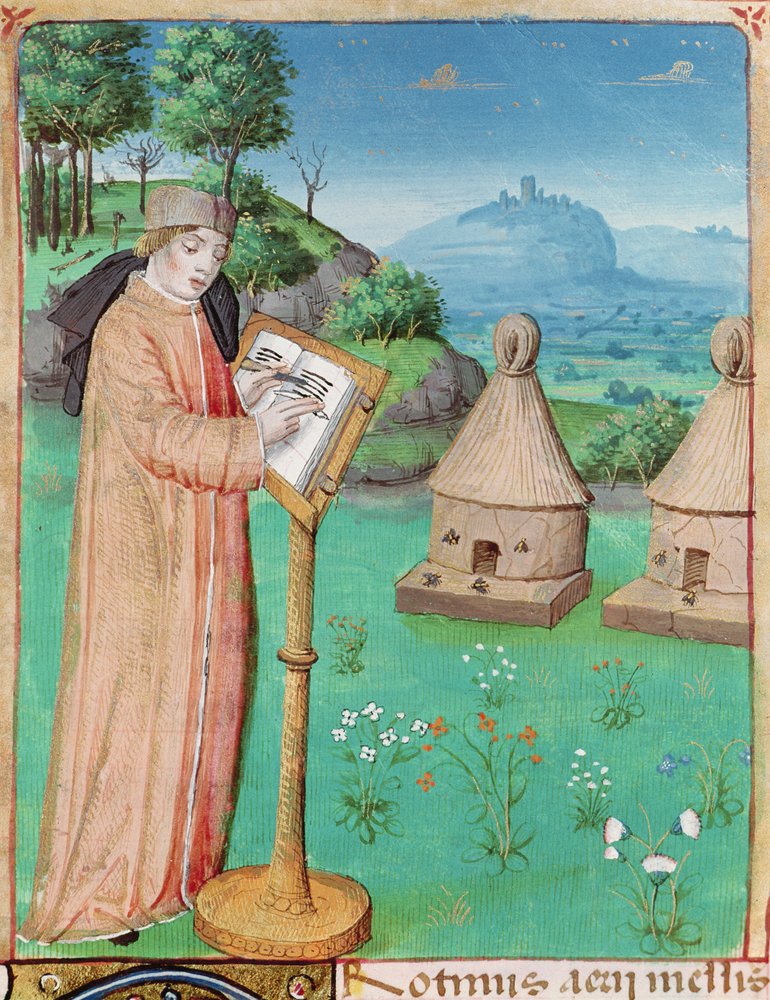 Rotinus aerij mellis